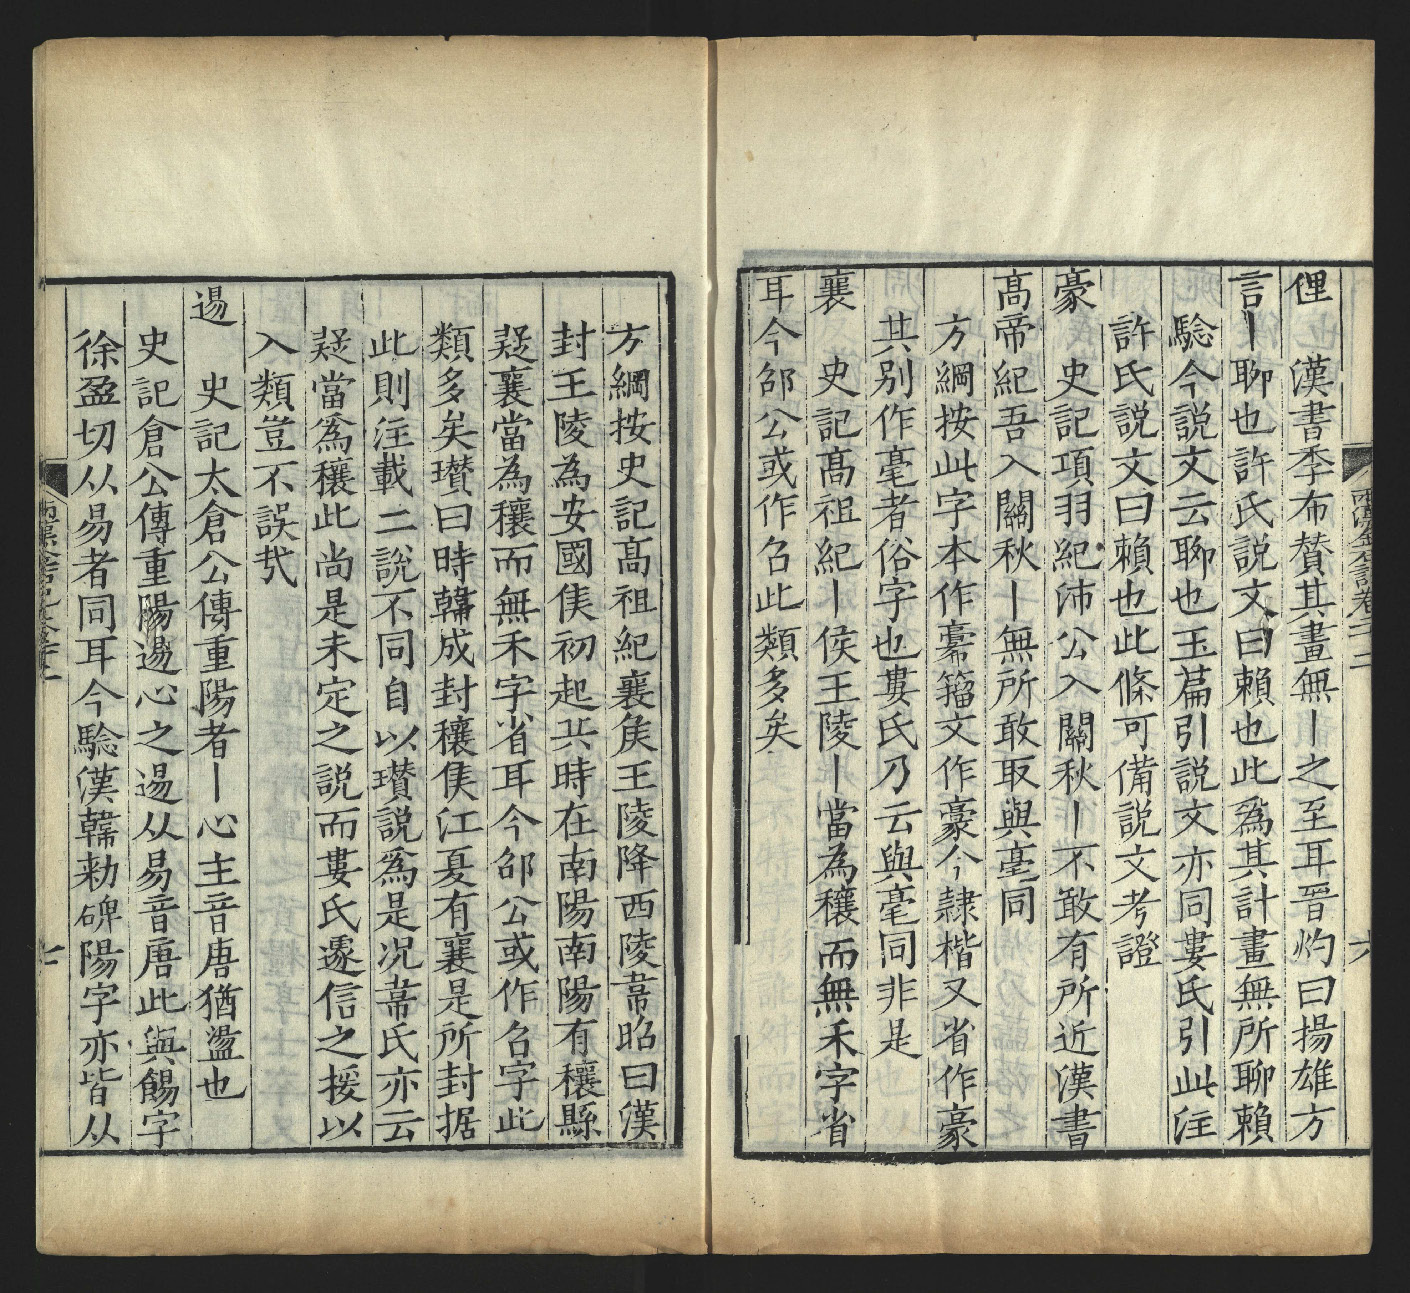 俚　漢書季布賛其畫無丨之至耳晉灼曰揚雄方
言丨聊也許氏說文曰賴也此爲其計畫無所聊賴
驗今説文云聊也玉篇引説文亦同婁氏引此注
許氏説文曰賴也此條可備説文考證
豪　史記項羽紀沛公入關秋丨不敢有所近漢書
高帝紀吾入關秋丨無所敢取與毫同
方綱按此字本作豪籀文作豪今隷楷又省作豪
其別作毫者俗字也婁氏乃云與毫同非是
襄　史記髙祖紀丨侯王陵丨當為穰而無禾字省
耳今邰公或作名此類多矣
兩漢金石記卷二十二　六
方綱按史記髙祖紀襄侯王陵降西陵韋昭曰漢
封王陵為安國侯初起兵時在南陽南陽有穰縣
疑襄當為穰而無禾字省耳今邰公或作名字此
類多矣瓚曰時韓成封穰侯江夏有襄是所封据
此則注載二說不同自以瓚說爲是况韋氏亦云
疑當爲穰此尚是未定之說而婁氏遂信之援以
入類豈不誤哉
逿　史記太倉公傳重陽者丨心主音唐猶盪也
史記倉公傳重陽逿心之逿从易音唐此與餳字
徐盈切从易者同耳今驗漢韓勅碑陽字亦皆从
七